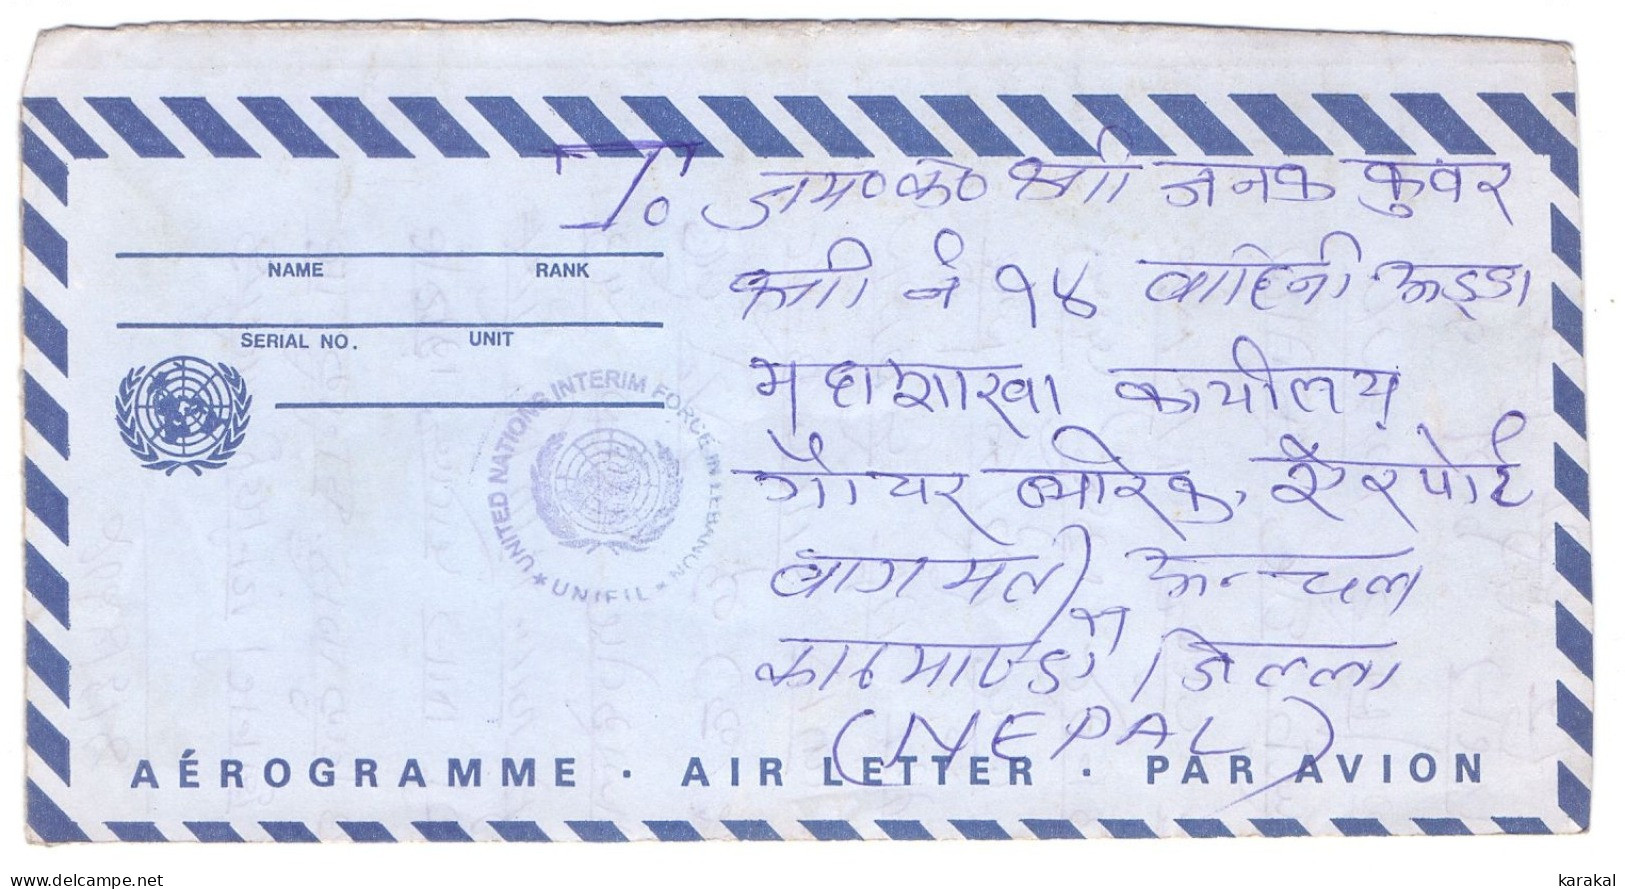 To जम०क० श्री जनक कुवर
श्री नं १४ वाहिनी अड्डा
महाशाखा कार्यालय
गौचर ब्यारेक, ऐरपोर्ट
वागमती अन्चल
काठमाण्डौ जिल्ला
(NEPAL)
NAME RANK
SERIAL NO. UNIT
UNITED NATIONS INTERIM FORCE IN LEBANON
* UNIFIL *
AÉROGRAMME · AIR LETTER · PAR AVION
delcampe.net
karakal